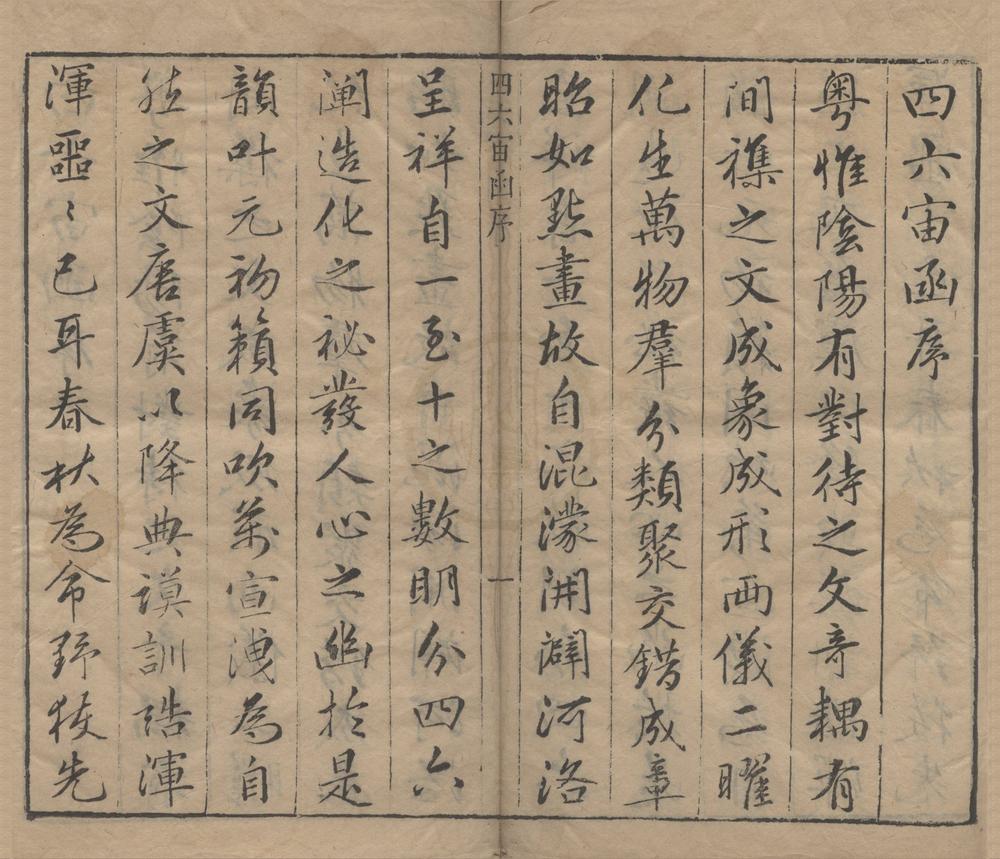 四六宙函序
粵惟陰陽有對待之文竒耦有
間襍之文成象成形两儀二曜
化生萬物羣分類聚交錯成章
昭如㸃畫故自混濛開闢河洛
四六宙函序
一
呈祥自一至十之數明分四六
闡造化之祕發人心之幽於是
韻叶元初籟同吹萬宣洩為自
然之文唐虞以降典謨訓誥渾
渾噩〻已耳春秋為命野獲先